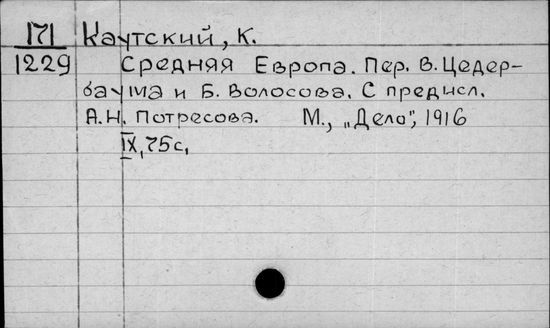 171 Каутский, К.
1229 Средняя Европа. Пер. В. Цедер-
баума и Б. Волосова. С предисл.
А.Н. Потресова. М., „Дело", 1916
IX, 75с,